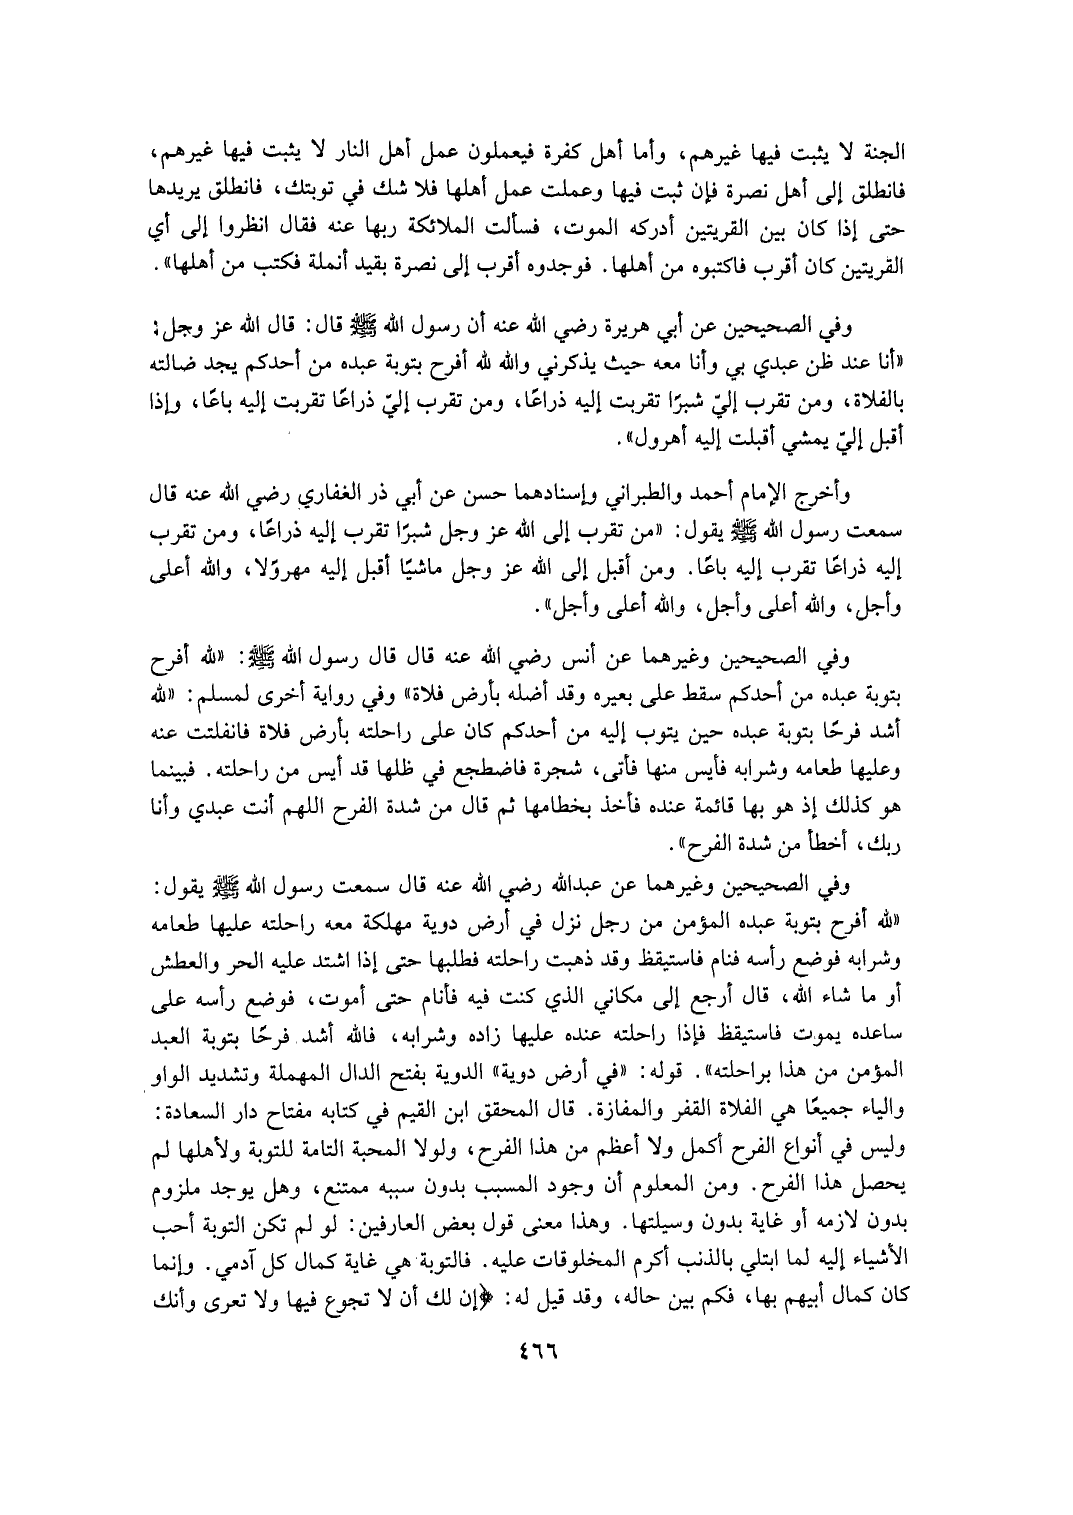 الجنة لا يثبت فيها غيرهم، وأما أهل كفرة فيعملون عمل أهل النار لا يثبت فيها غيرهم،
فانطلق إلى أهل نصرة فإن ثبت فيها وعملت عمل أهلها فلا شك في توبتك، فانطلق يريدها
حتى إذا كان بين القريتين أدركه الموت، فسألت الملائكة ربها عنه فقال انظروا إلى أي
القريتين كان أقرب فاكتبوه من أهلها. فوجدوه أقرب إلى نصرة بقيد أنملة فكتب من أهلها».
وفي الصحيحين عن أبي هريرة رضي الله عنه أن رسول الله ﷺ قال: قال الله عز وجل:
«أنا عند ظن عبدي بي وأنا معه حيث يذكرني والله لله أفرح بتوبة عبده من أحدكم يجد ضالته
بالفلاة، ومن تقرب إليّ شبرًا تقربت إليه ذراعًا، ومن تقرب إليّ ذراعًا تقربت إليه باعًا، وإذا
أقبل إليّ يمشي أقبلت إليه أهرول».
وأخرج الإمام أحمد والطبراني وإسنادهما حسن عن أبي ذر الغفاري رضي الله عنه قال
سمعت رسول الله ﷺ يقول: «من تقرب إلى الله عز وجل شبرًا تقرب إليه ذراعًا، ومن تقرب
إليه ذراعًا تقرب إليه باعًا. ومن أقبل إلى الله عز وجل ماشيًا أقبل إليه مهرولًا، والله أعلى
وأجل، والله أعلى وأجل، والله أعلى وأجل».
وفي الصحيحين وغيرهما عن أنس رضي الله عنه قال قال رسول الله ﷺ: «لله أفرح
بتوبة عبده من أحدكم سقط على بعيره وقد أضله بأرض فلاة» وفي رواية أخرى لمسلم: «لله
أشد فرحًا بتوبة عبده حين يتوب إليه من أحدكم كان على راحلته بأرض فلاة فانفلتت عنه
وعليها طعامه وشرابه فأيس منها فأتى، شجرة فاضطجع في ظلها قد أيس من راحلته. فبينما
هو كذلك إذ هو بها قائمة عنده فأخذ بخطامها ثم قال من شدة الفرح اللهم أنت عبدي وأنا
ربك، أخطأ من شدة الفرح».
وفي الصحيحين وغيرهما عن عبدالله رضي الله عنه قال سمعت رسول الله ﷺ يقول:
«لله أفرح بتوبة عبده المؤمن من رجل نزل في أرض دوية مهلكة معه راحلته عليها طعامه
وشرابه فوضع رأسه فنام فاستيقظ وقد ذهبت راحلته فطلبها حتى إذا اشتد عليه الحر والعطش
أو ما شاء الله، قال أرجع إلى مكاني الذي كنت فيه فأنام حتى أموت، فوضع رأسه على
ساعده يموت فاستيقظ فإذا راحلته عنده عليها زاده وشرابه، فالله أشد فرحًا بتوبة العبد
المؤمن من هذا براحلته». قوله: «في أرض دوية» الدوية بفتح الدال المهملة وتشديد الواو
والياء جميعًا هي الفلاة القفر والمفازة. قال المحقق ابن القيم في كتابه مفتاح دار السعادة:
وليس في أنواع الفرح أكمل ولا أعظم من هذا الفرح، ولولا المحبة التامة للتوبة ولأهلها لم
يحصل هذا الفرح. ومن المعلوم أن وجود المسبب بدون سببه ممتنع، وهل يوجد ملزوم
بدون لازمه أو غاية بدون وسيلتها. وهذا معنى قول بعض العارفين: لو لم تكن التوبة أحب
الأشياء إليه لما ابتلي بالذنب أكرم المخلوقات عليه. فالتوبة هي غاية كمال كل آدمي. وإنما
كان كمال أبيهم بها، فكم بين حاله، وقد قيل له: ﴿إن لك أن لا تجوع فيها ولا تعرى وأنك
٤٦٦